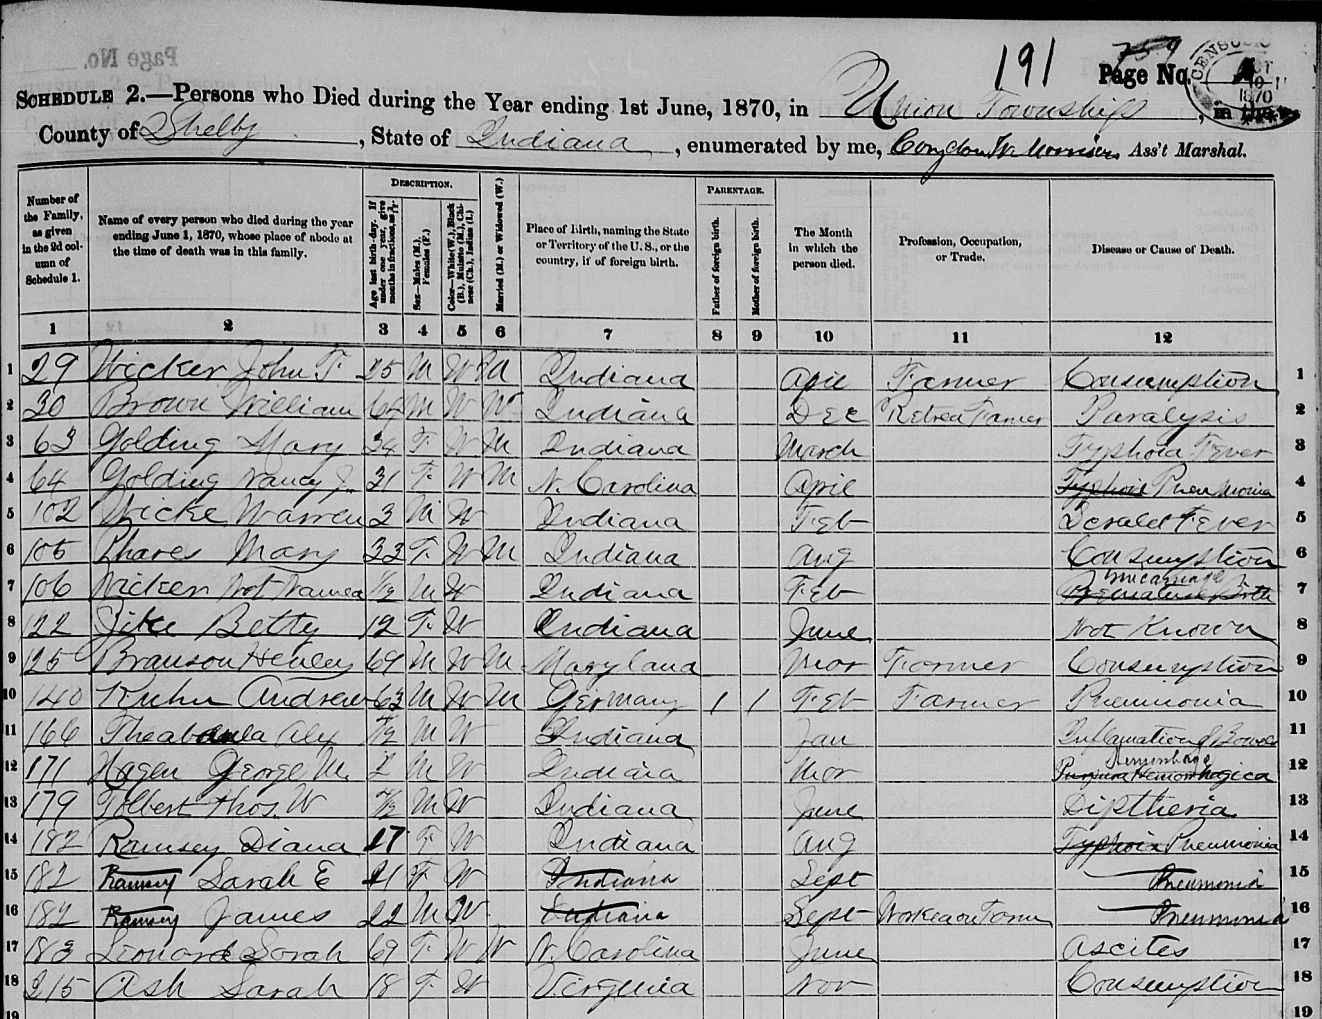 Page No.
191 759 Page No.
CENSUS OCT 1870
SCHEDULE 2.—Persons who Died during the Year ending 1st June, 1870, in Union Township, in the
County of Shelby, State of Indiana, enumerated by me, Congdon W. Morrison Ass't Marshal.
Number of the Family, as given in the 2d column of Schedule 1.
Name of every person who died during the year ending June 1, 1870, whose place of abode at the time of death was in this family.
DESCRIPTION.
Age last birth-day. If under one year, give months in fractions, as
Sex—Males (M.), Females (F.)
Color—White (W.), Black (B.), Mulatto (M.), Chinese (Ch.), Indian (I.)
Married (M.) or Widowed (W.)
Place of Birth, naming the State or Territory of the U. S., or the country, if of foreign birth.
PARENTAGE.
Father of foreign birth.
Mother of foreign birth.
The Month in which the person died.
Profession, Occupation, or Trade.
Disease or Cause of Death.
1 2 3 4 5 6 7 8 9 10 11 12
1 29 Wicker John F. 25 M W M Indiana Apil Farmer Consumption 1
2 30 Brown William 64 M W W Indiana Dec Farmer Paralysis 2
3 63 Golding Mary 34 F W M Indiana March Typhoid Fever 3
4 64 Golding Nancy J. 31 F W M N. Carolina Apil Typhoid Pneumonia 4
5 102 Wicke Warren 3 M W Indiana Feb Fever 5
6 105 Phares Mary 33 F W M Indiana Aug Consumption 6
7 106 Wicker Not Named M W Indiana Feb Miscarriage Premature Birth 7
8 122 Betty 12 F W Indiana June Not Known 8
9 125 Branson Henley 69 M W M Maryland Mar Farmer Consumption 9
10 140 Kuhn Andrew 63 M W M Germany 1 1 Feb Farmer Pneumonia 10
11 166 Alex M W Indiana Jan Inflamation of Bowels 11
12 171 Hagen George M. M W Indiana Mar Hemorrhage Purpura Hemorrhagica 12
13 179 Tolbert Thos. W M W Indiana June Diptheria 13
14 182 Ramsey Diana 17 F W Indiana Aug Typhoid Pneumonia 14
15 182 Ramsey Sarah E 21 F W Indiana Sept Pneumonia 15
16 182 Ramsey James 22 M W Indiana Sept Worked on Farm Pneumonia 16
17 183 Leonard Sarah 69 F W W N. Carolina June Ascites 17
18 215 Ash Sarah 18 F W Virginia Nov Consumption 18
19 19